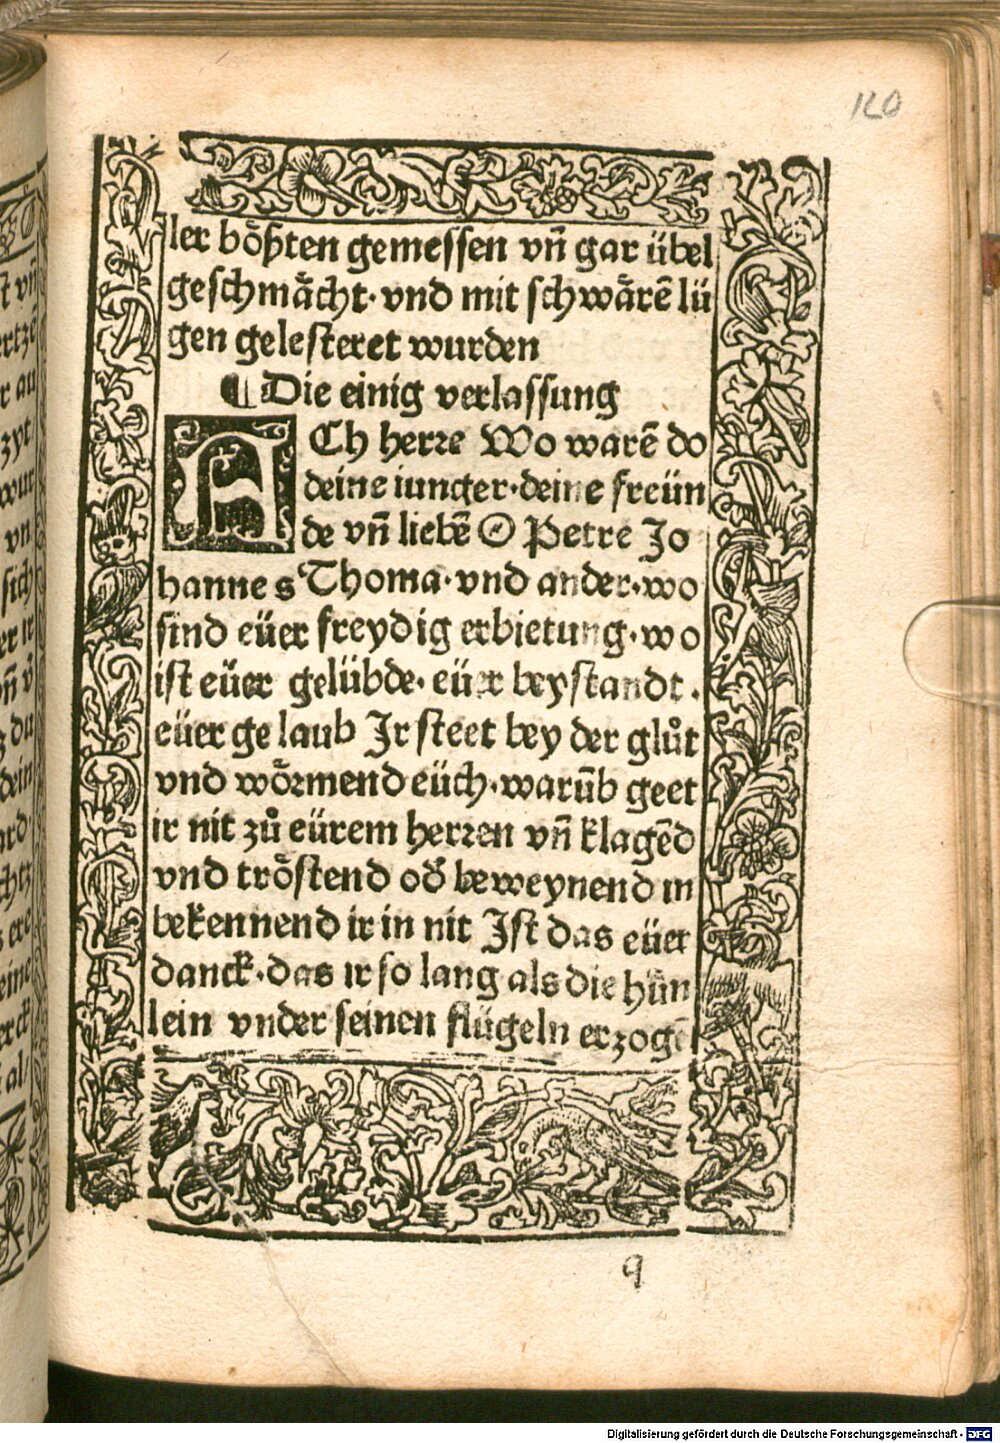 120
ler bo᷑ßten gemessen vn̄ gar übel
geschmaͤcht· vnd mit schwaͤrē lü
gen gelesteret wurden
¶ Die einig verlassung
ACh herre Wo warē do
deine iunger· deine freün
de vn̄ liebē O Petre Jo
hannes Thoma· vnd ander· wo
sind eüer freydig erbietung· wo
ist eüer gelübde· eüer beystandt.
eüer gelaub Jr steet bey der glůt
vnd woͤrmend eüch· warūb geet
ir nit zů eürem herren vn̄ klagēd
vnd troͤstend od̄ beweynend in
bekennend ir in nit Jst das eüer
danck· das ir so lang als die hün
lein vnder seinen flügeln erzogē
q
Digitalisierung gefördert durch die Deutsche Forschungsgemeinschaft - DFG